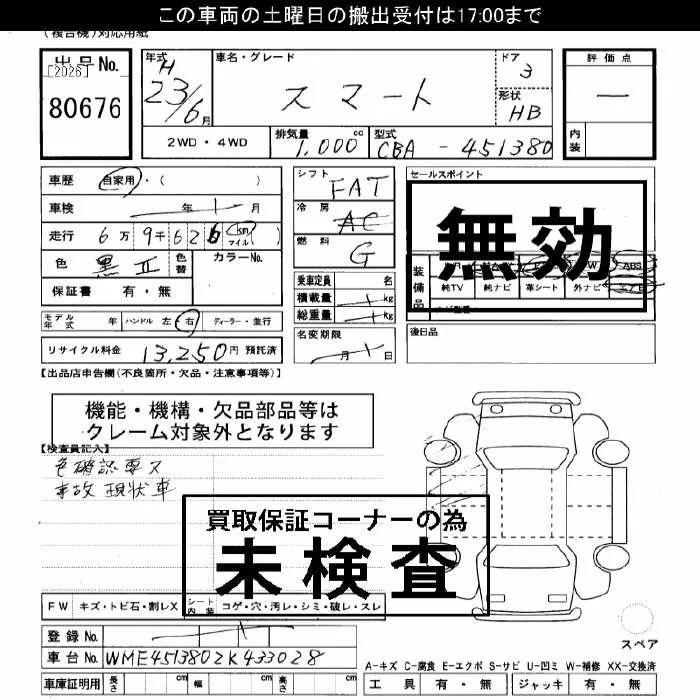 この車両の土曜日の搬出受付は17:00まで
(複合機)対応用紙
出品No.
[2026]
80676
年式 H 23/6月
車名・グレード
スマート
ドア 3
形状 HB
評価点
一
内装
2WD・4WD
排気量 1,000 cc
型式 CBA - 451380
車歴 自家用・( )
車検 年 月
走行 6万9千626 km マイル ( )
色 黒II 色替 カラーNo.
保証書 有・無
モデル年式 年 ハンドル 左 右 ディーラー・並行
リサイクル料金 13,250円 預託済
シフト FAT
冷房 AC
燃料 G
乗車定員 名
積載量 kg
総重量 kg
名変期限
月 日
セールスポイント
無効
装備品
ABS
純TV 純ナビ 革シート 外ナビ
後日品
【出品店申告欄(不良箇所・欠品・注意事項等)】
機能・機構・欠品部品等は
クレーム対象外となります
【検査員記入】
色確認要ス
事故 現状車
買取保証コーナーの為
未検査
FW キズ・トビ石・割レX シート内装 コゲ・穴・汚レ・シミ・破レ・スレ
登録No.
車台No. WME4513802K433028
車庫証明用 長さ cm 幅 cm 高さ cm
スペア
A-キズ C-腐食 E-エクボ S-サビ U-凹ミ W-補修 XX-交換済
工具 有・無 ジャッキ 有・無